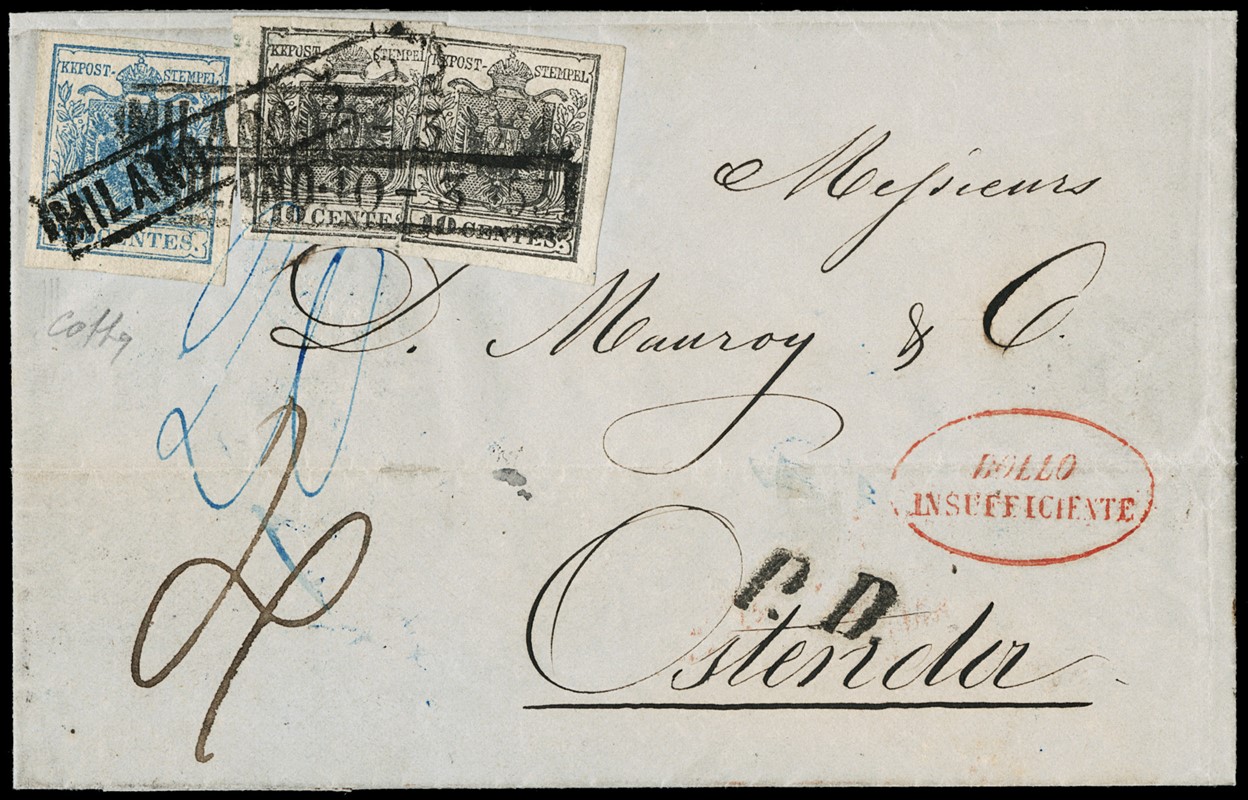 KKPOST-STEMPEL
KKPOST-STEMPEL
KKPOST-STEMPEL
MILANO
MILANO
10-3
CENTES.
10 CENTES.
10 CENTES.
Messieurs
D. Mauroy & C.
BOLLO
INSUFFICIENTE
P. D.
Ostenda